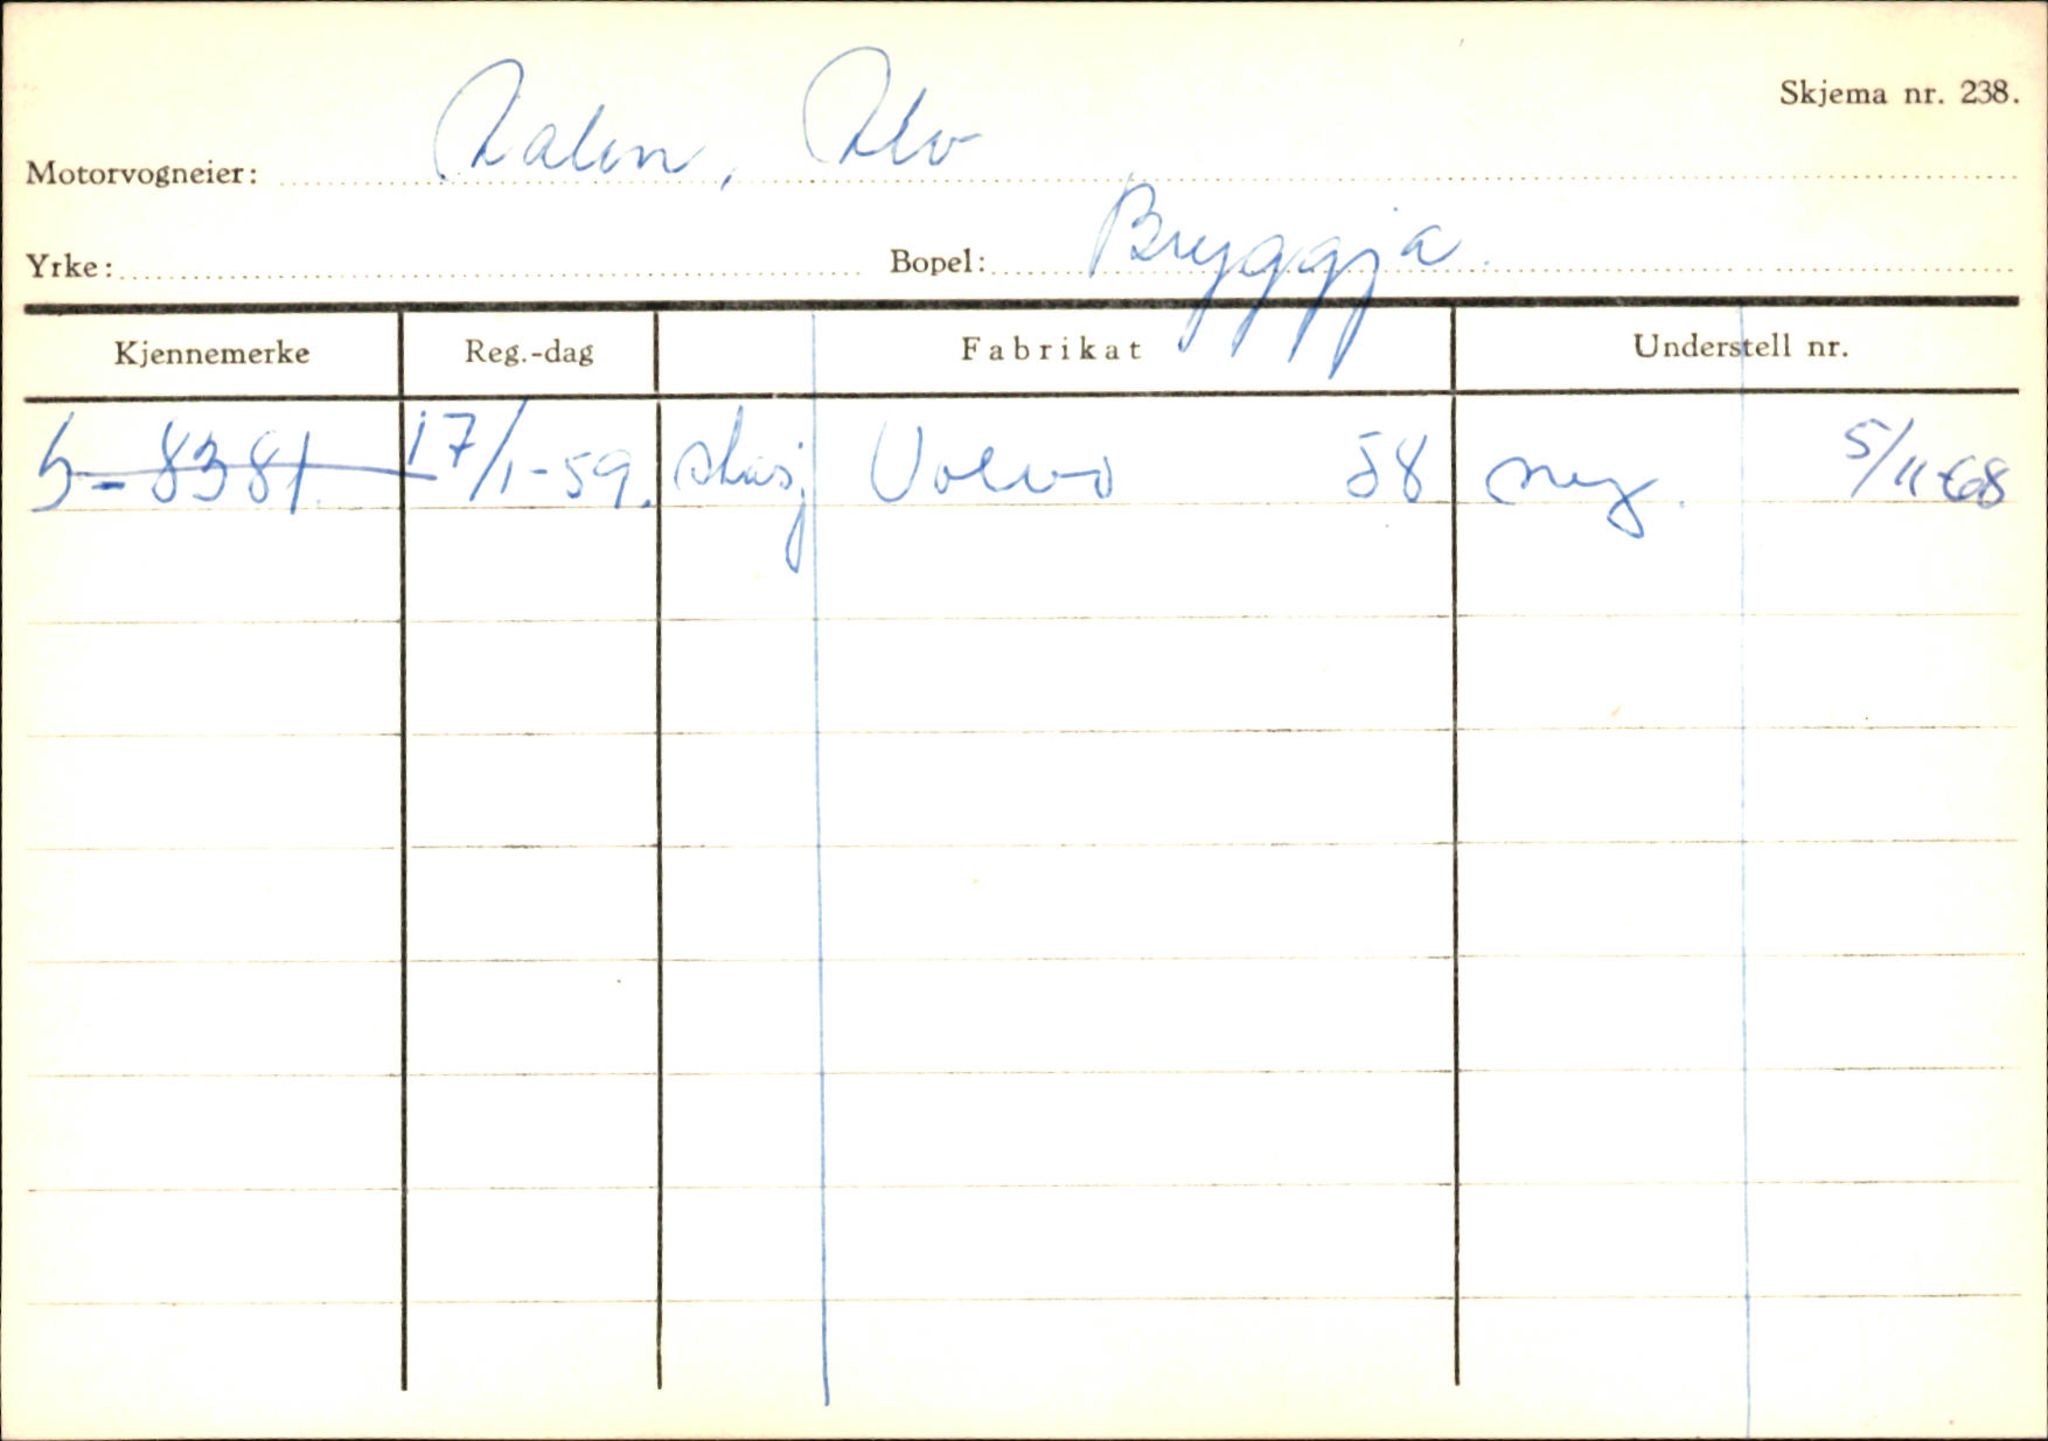 Skjema nr. 238.
Motorvogneier:
Yrke: Bopel: Bryggja.
Kjennemerke Reg.-dag Fabrikat Understell nr.
S-8381 17/1-59. stasj Volvo 58 neg. 5/11-68